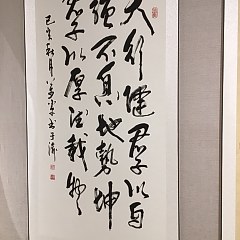 天行健君子以自
强不息地勢坤
君子以厚德載物
己亥秋月